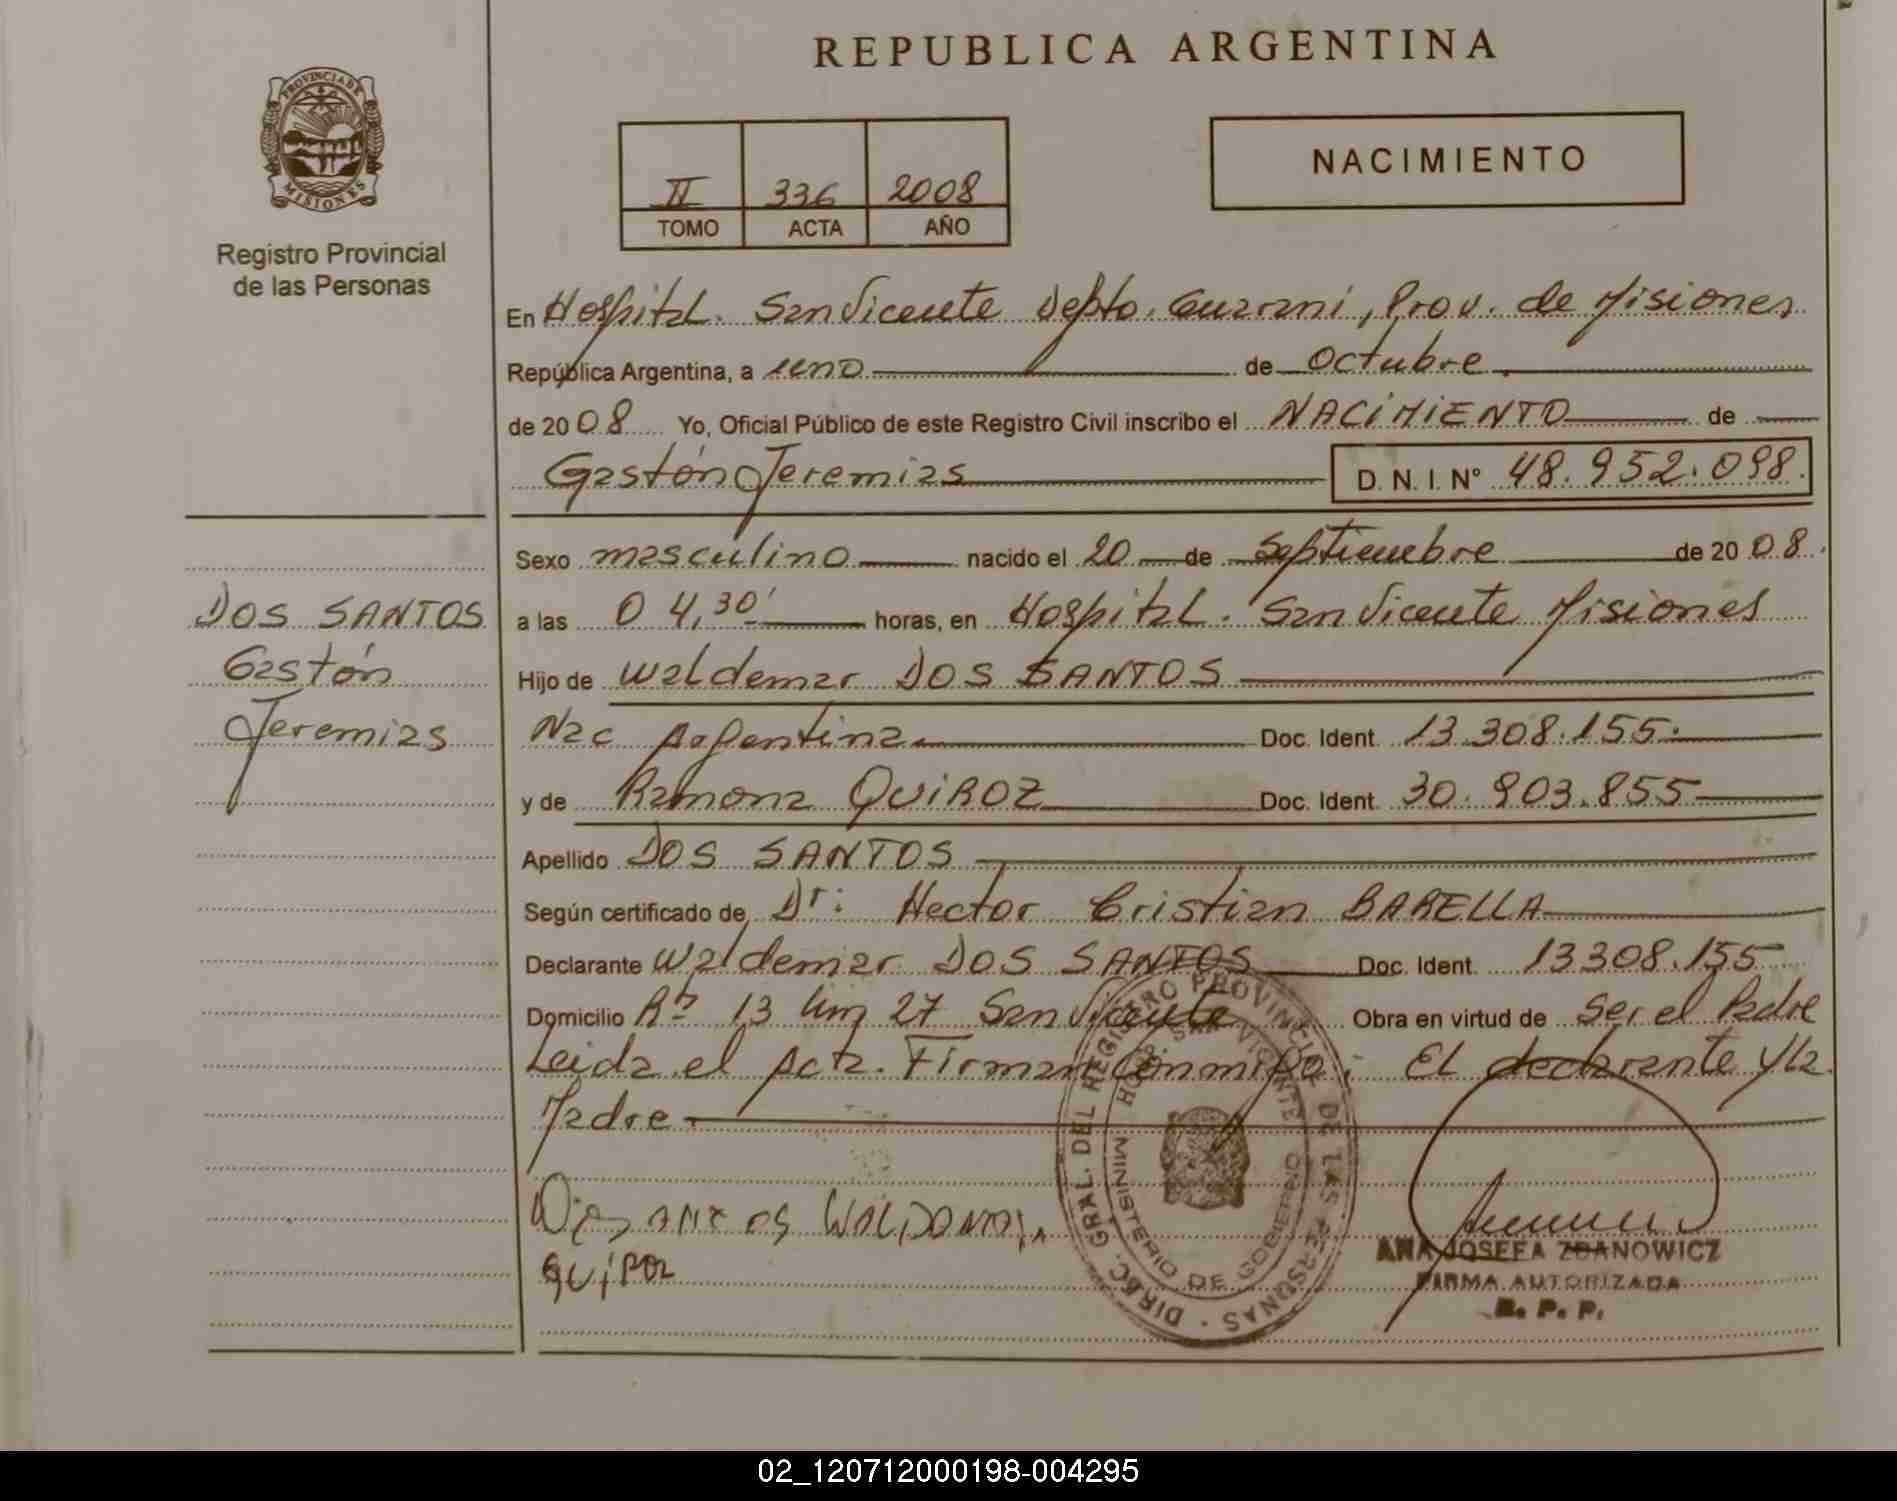 REPUBLICA ARGENTINA
PROVINCIA DE
MISIONES
Registro Provincial
de las Personas
II 336 2008
TOMO ACTA AÑO
NACIMIENTO
En Hospital. San Vicente Depto. Guarani, Prov. de Misiones
República Argentina, a uno de Octubre
de 2008 Yo, Oficial Público de este Registro Civil inscribo el NACIMIENTO de
Gastón Jeremias D. N. I. N° 48.952.098.
DOS SANTOS
Gastón
Jeremias
Sexo masculino nacido el 20 de Septiembre de 2008.
a las 04,30' horas, en Hospital. San Vicente Misiones
Hijo de Waldemar DOS SANTOS
Nac Argentina Doc. Ident. 13.308.155.
y de Ramona QUiROZ Doc. Ident. 30.903.855
Apellido DOS SANTOS
Según certificado de Dr: Hector Cristian BARELLA
Declarante Waldemar DOS SANTOS Doc. Ident. 13308.155
Domicilio 13 km 27 San Vicente Obra en virtud de Ser el Padre
Leida el Acta. Firman Conmigo: El declarante y la
Madre
DIREC. GRAL. DEL REGISTRO PROVINCIAL DE LAS PERSONAS
HOSP. SAN VICENTE
MINISTERIO DE GOBIERNO
ANA JOSEFA ZDANOWICZ
FIRMA AUTORIZADA
R. P. P.
02_120712000198-004295